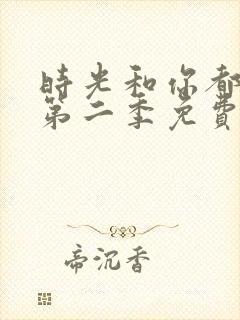 時光和你都
第二季免費
帝沉香